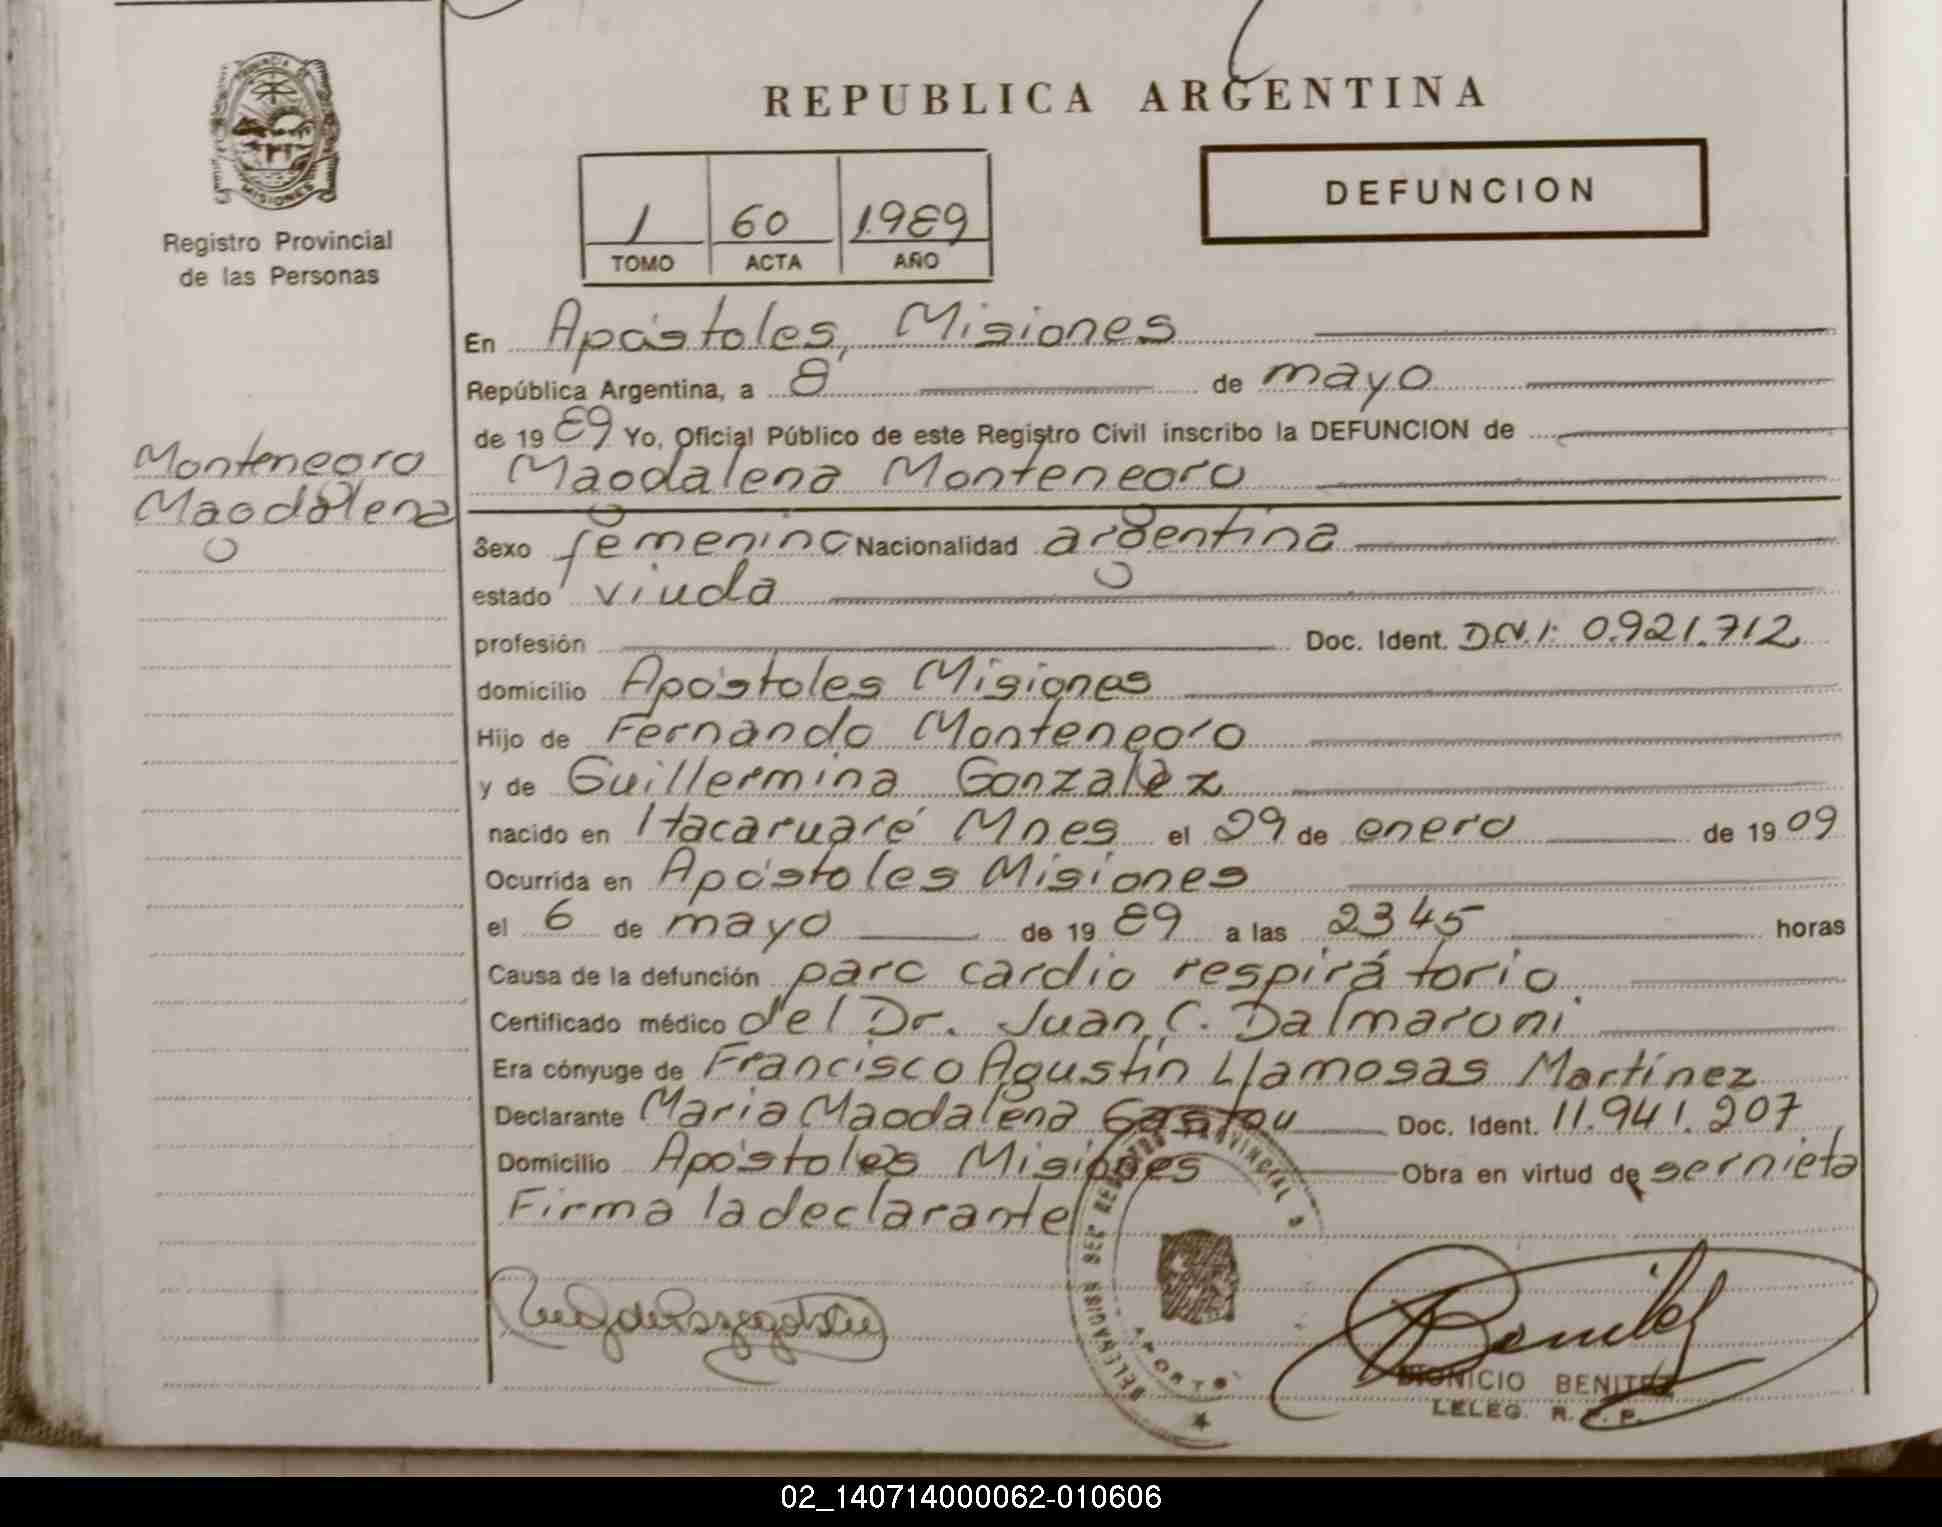 REPUBLICA ARGENTINA
PROVINCIA DE
MISIONES
Registro Provincial
de las Personas
1 60 1989
TOMO ACTA AÑO
DEFUNCION
En Apóstoles, Misiones
República Argentina, a 8 de mayo
de 1989 Yo, Oficial Público de este Registro Civil inscribo la DEFUNCION de
Magdalena Montenegro
Montenegro
Magdalena
Sexo femenino Nacionalidad argentina
estado viuda
profesión Doc. Ident. D.N.I: 0.921.712
domicilio Apóstoles Misiones
Hijo de Fernando Montenegro
y de Guillermina Gonzalez
nacido en Itacaruaré Mnes el 29 de enero de 1909
Ocurrida en Apóstoles Misiones
el 6 de mayo de 1989 a las 2345 horas
Causa de la defunción paro cardio respirátorio
Certificado médico del Dr. Juan C. Dalmaroni
Era cónyuge de Francisco Agustín Llamosas Martínez
Declarante Maria Magdalena Gastou Doc. Ident. 11.941.207
Domicilio Apóstoles Misiones Obra en virtud de ser nieta
Firma la declarante
PROVINCIAL
Benitez
DIONICIO BENITEZ
02_140714000062-010606